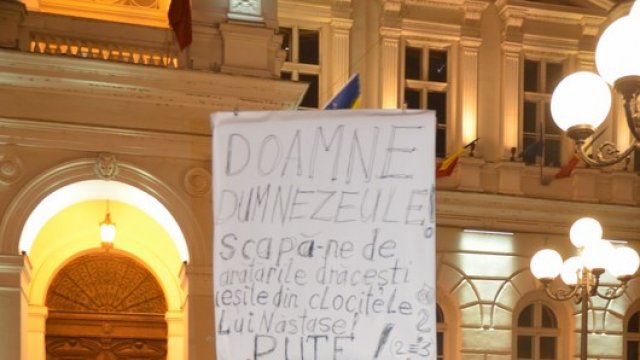 DOAMNE
DUMNEZEULE!
Scapă-ne de
aratările dracești
ieșite din clocitele
Lui Năstase!
PUTE!